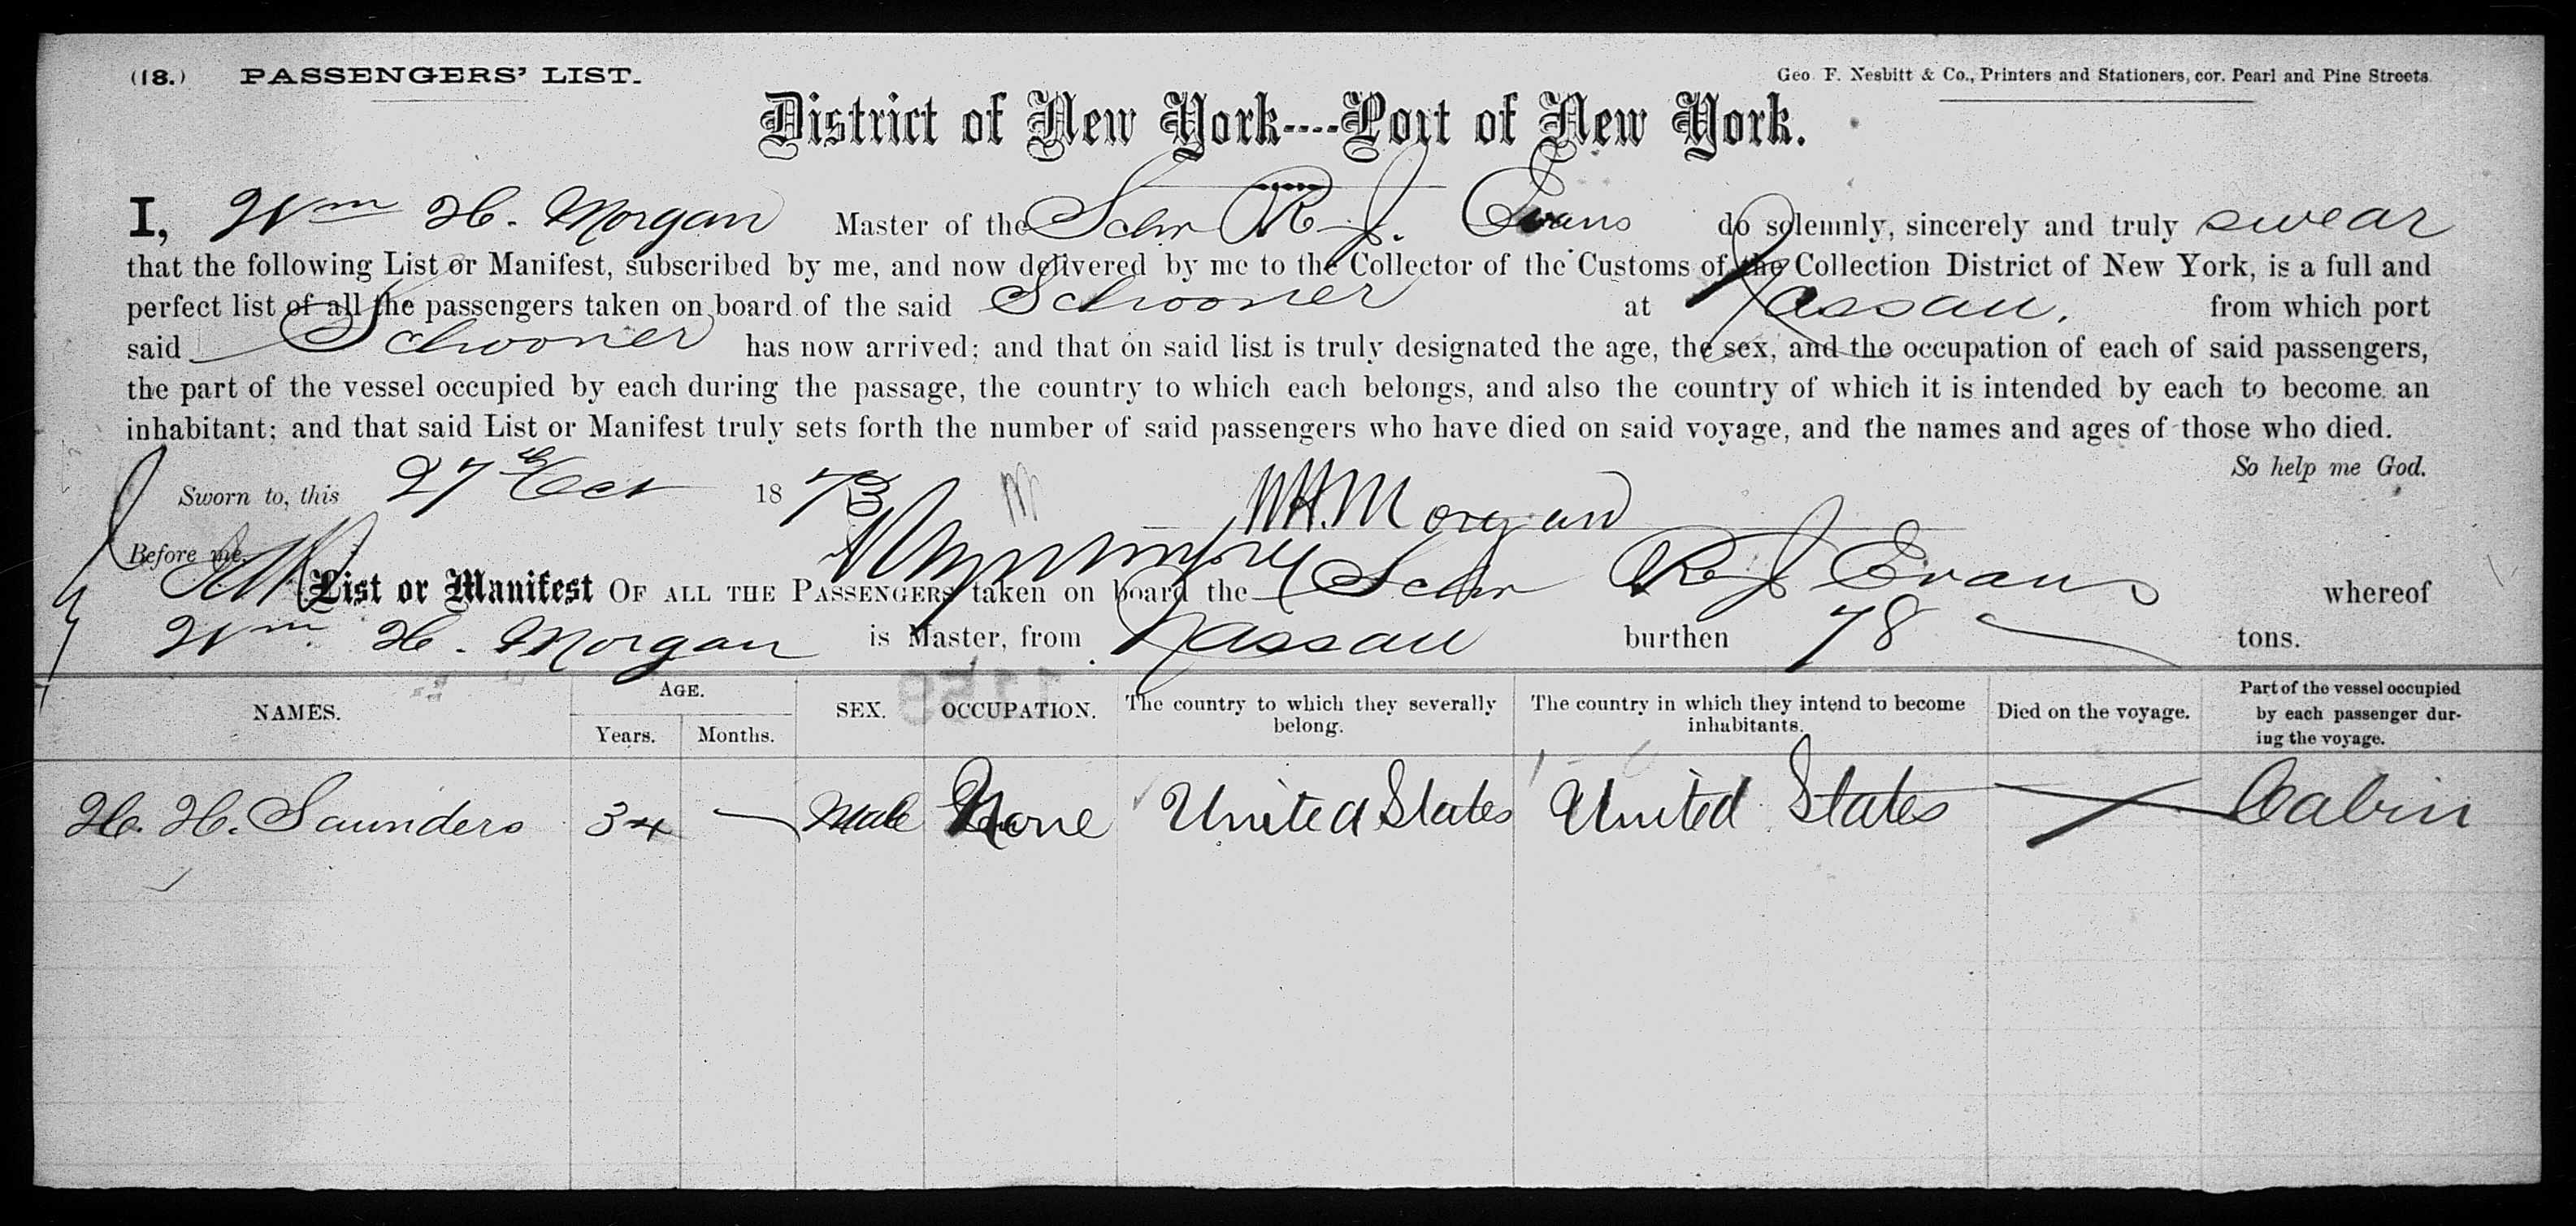 (18.) PASSENGERS' LIST.
Geo. F. Nesbitt & Co., Printers and Stationers, cor. Pearl and Pine Streets.
District of New York----Port of New York.
I, Wm H. Morgan Master of the Schr R. J. Evans do solemnly, sincerely and truly swear
that the following List or Manifest, subscribed by me, and now delivered by me to the Collector of the Customs of the Collection District of New York, is a full and
perfect list of all the passengers taken on board of the said Schooner at Nassau, from which port
said Schooner has now arrived; and that on said list is truly designated the age, the sex, and the occupation of each of said passengers,
the part of the vessel occupied by each during the passage, the country to which each belongs, and also the country of which it is intended by each to become an
inhabitant; and that said List or Manifest truly sets forth the number of said passengers who have died on said voyage, and the names and ages of those who died.
So help me God.
Sworn to, this 27th Oct 1873 W.H. Morgan
Before me,
List or Manifest OF ALL THE PASSENGERS taken on board the Schr R J Evans whereof
Wm H. Morgan is Master, from Nassau burthen 78 tons.
NAMES. AGE. Years. Months. SEX. OCCUPATION. The country to which they severally belong. The country in which they intend to become inhabitants. Died on the voyage. Part of the vessel occupied by each passenger during the voyage.
H. H. Saunders 34 — Male None United States United States Cabin